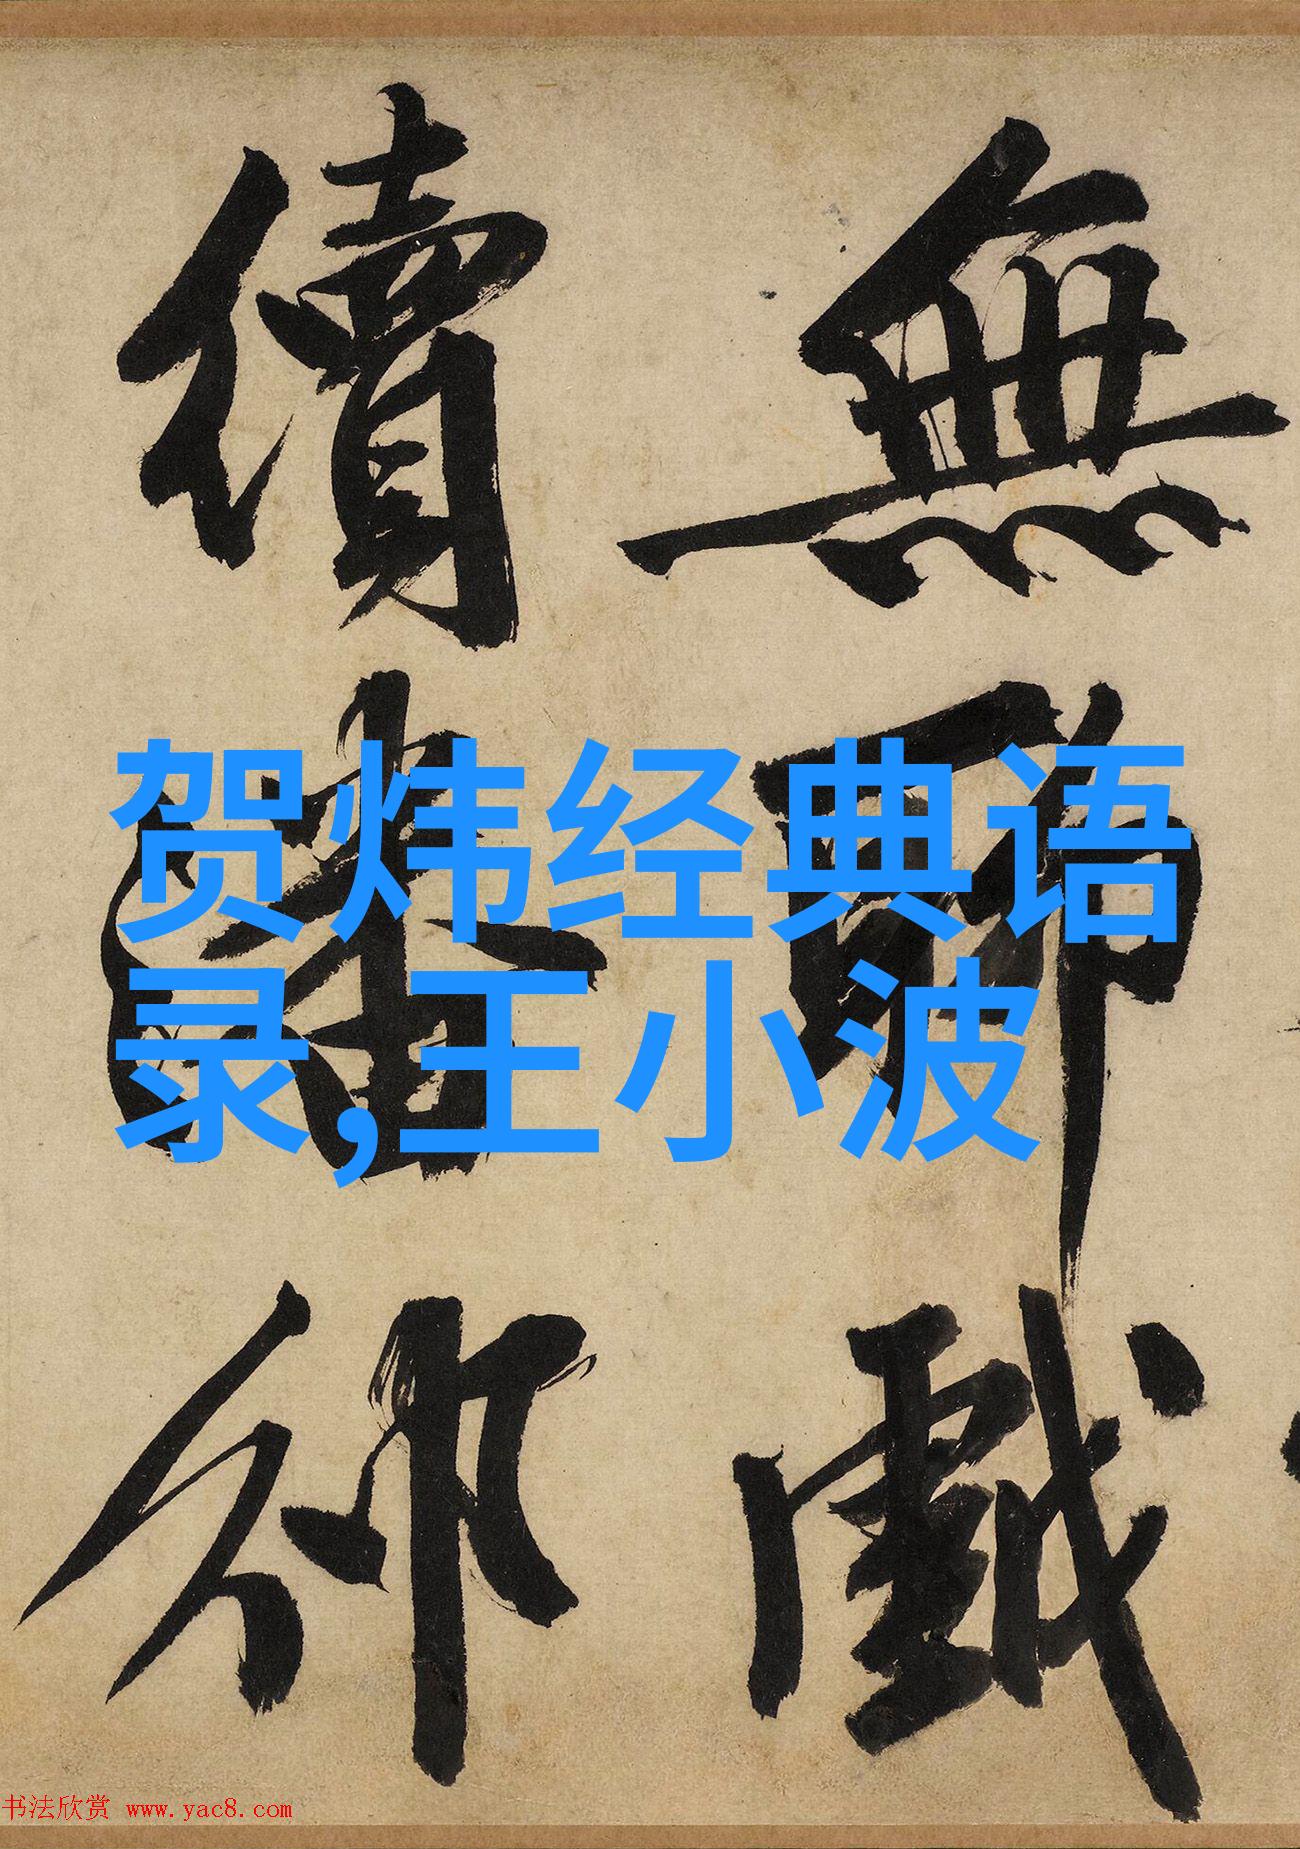 無聊戲
續潘邠
贺炜经典语
录,王小波
书法欣赏 www.yac8.com